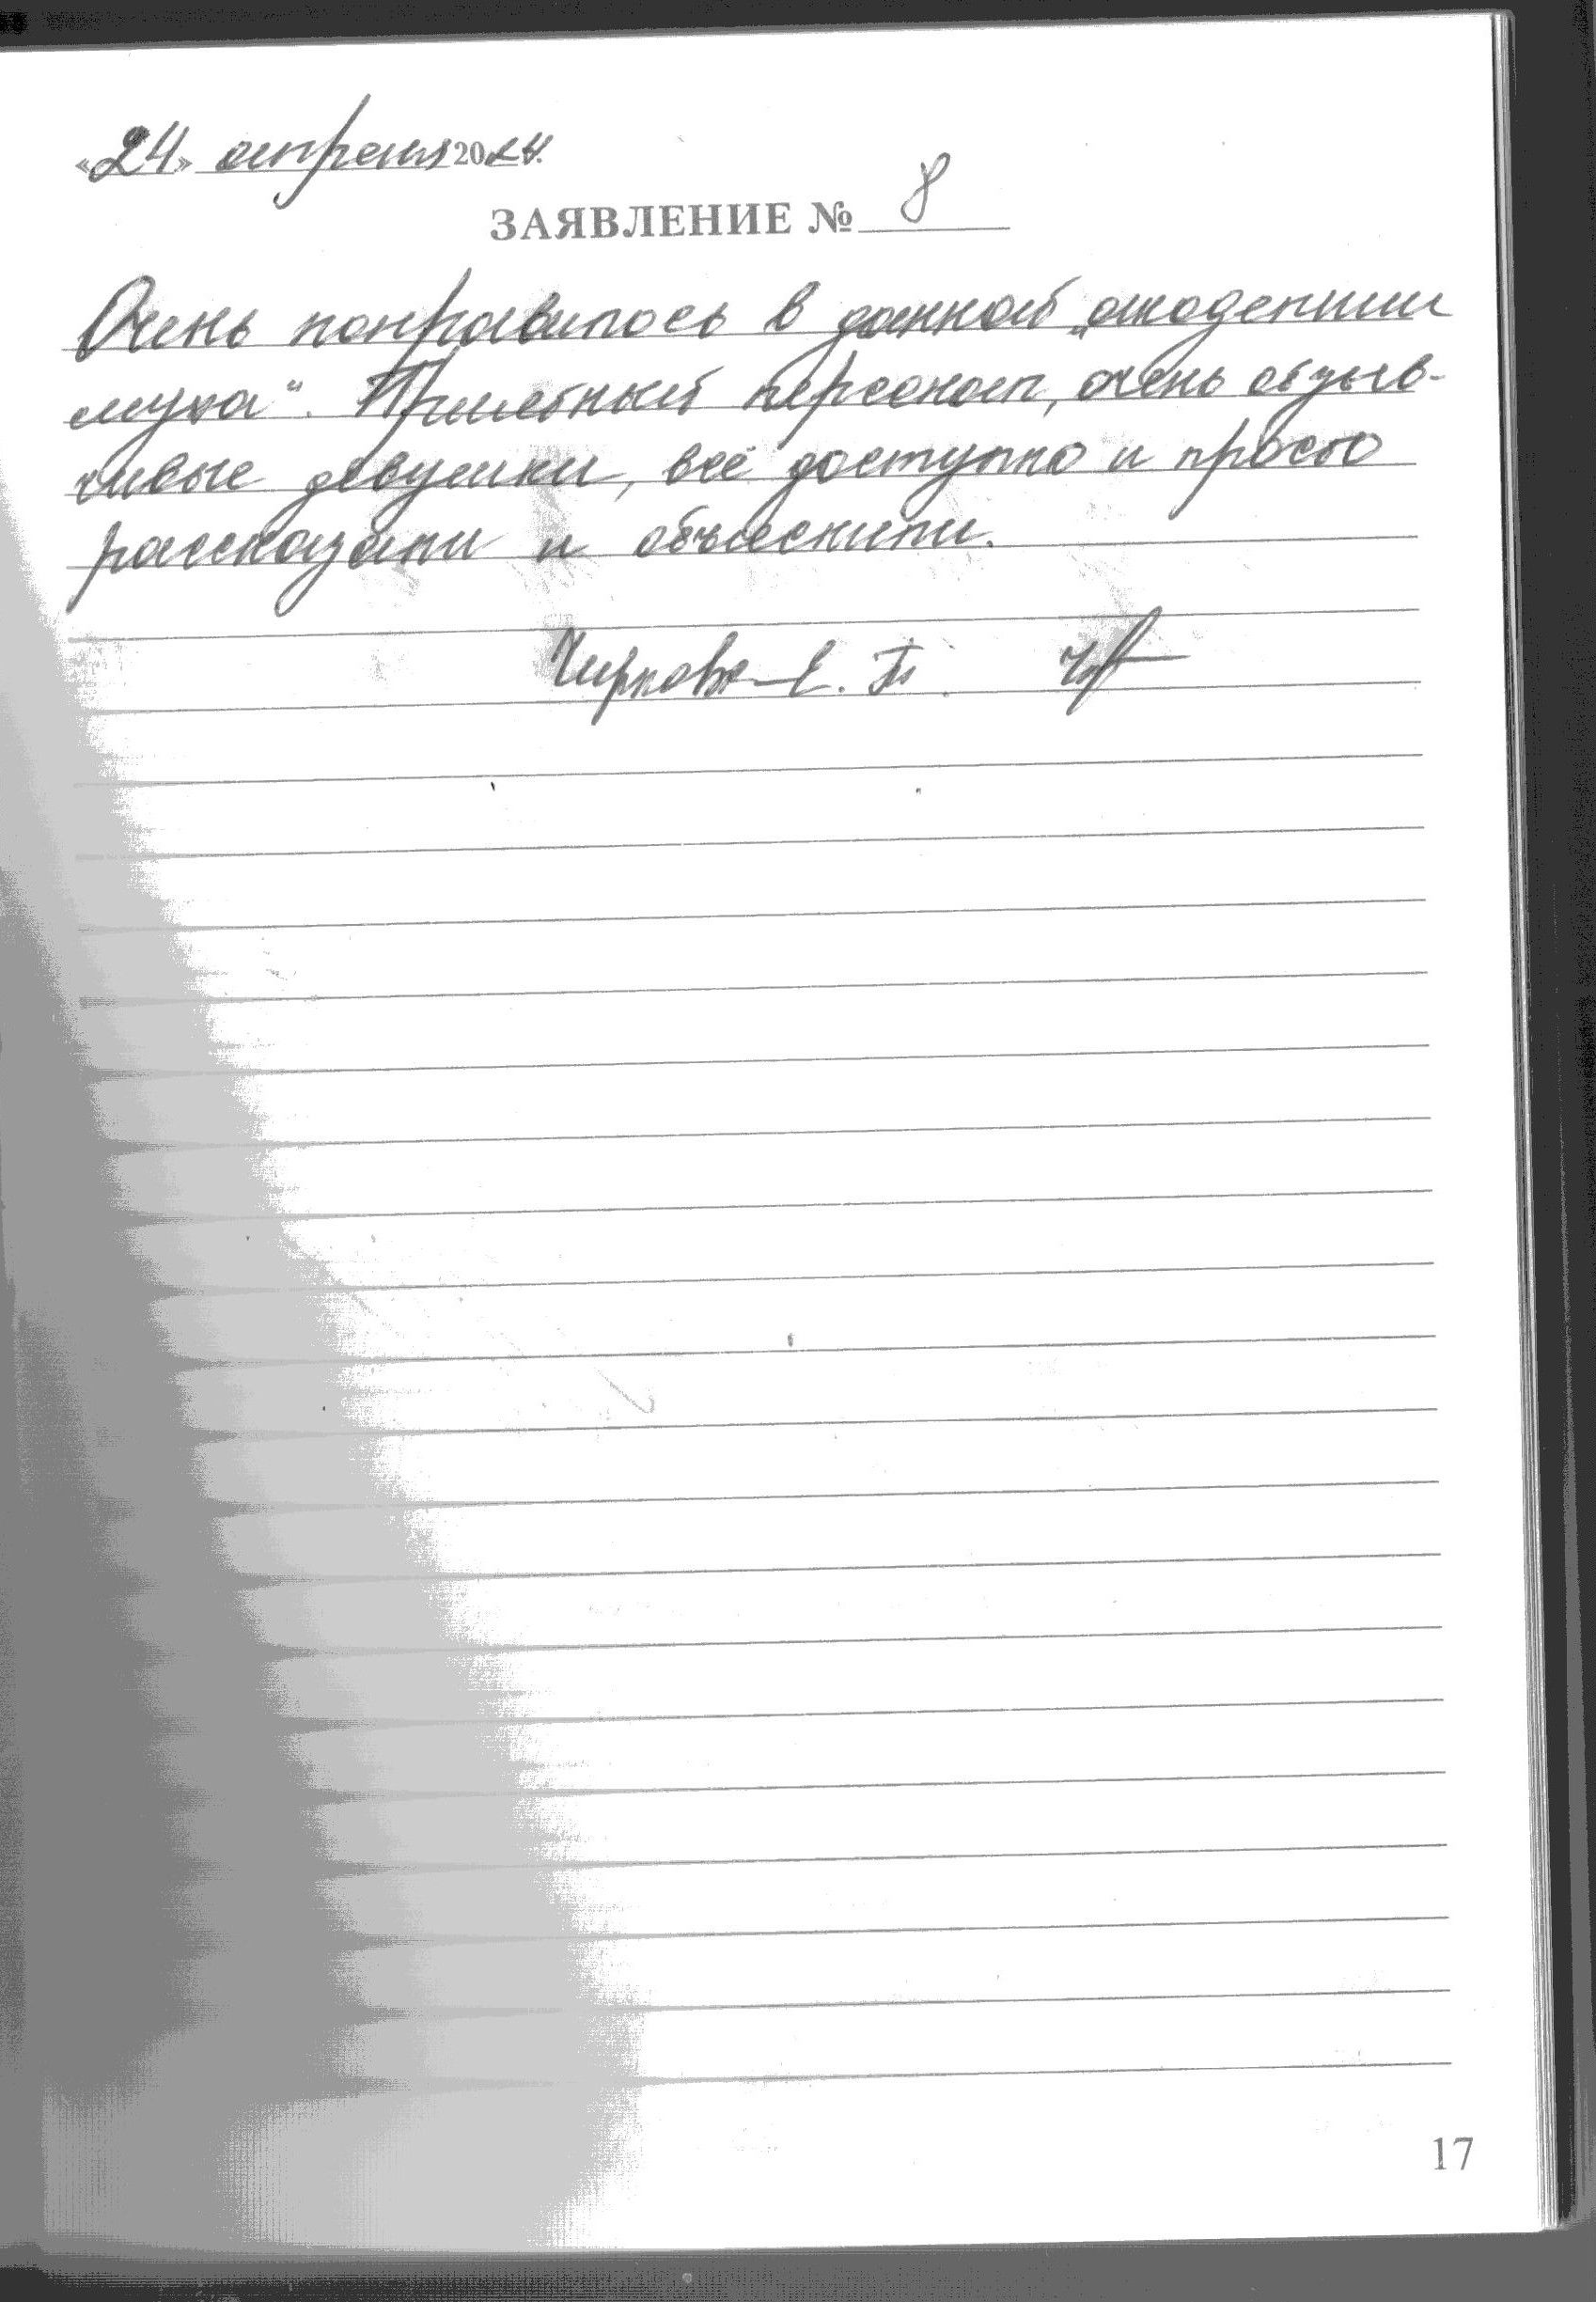 «24» апреля 2024.
ЗАЯВЛЕНИЕ № 8
Очень понравилось в данной „академии
слуха“. Приятный персонал, очень отзыв-
чивые девушки, всё доступно и просто
рассказали и объяснили.
Чиркова Е. П.
17